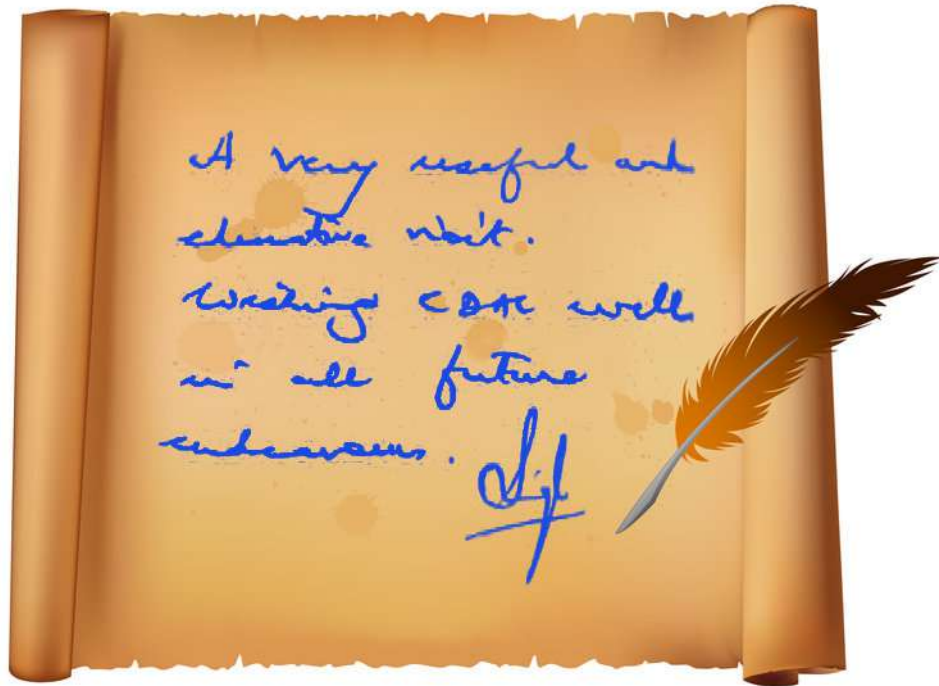 A very useful and
visit.
Wishing CDAC well
in all future
endeavours.